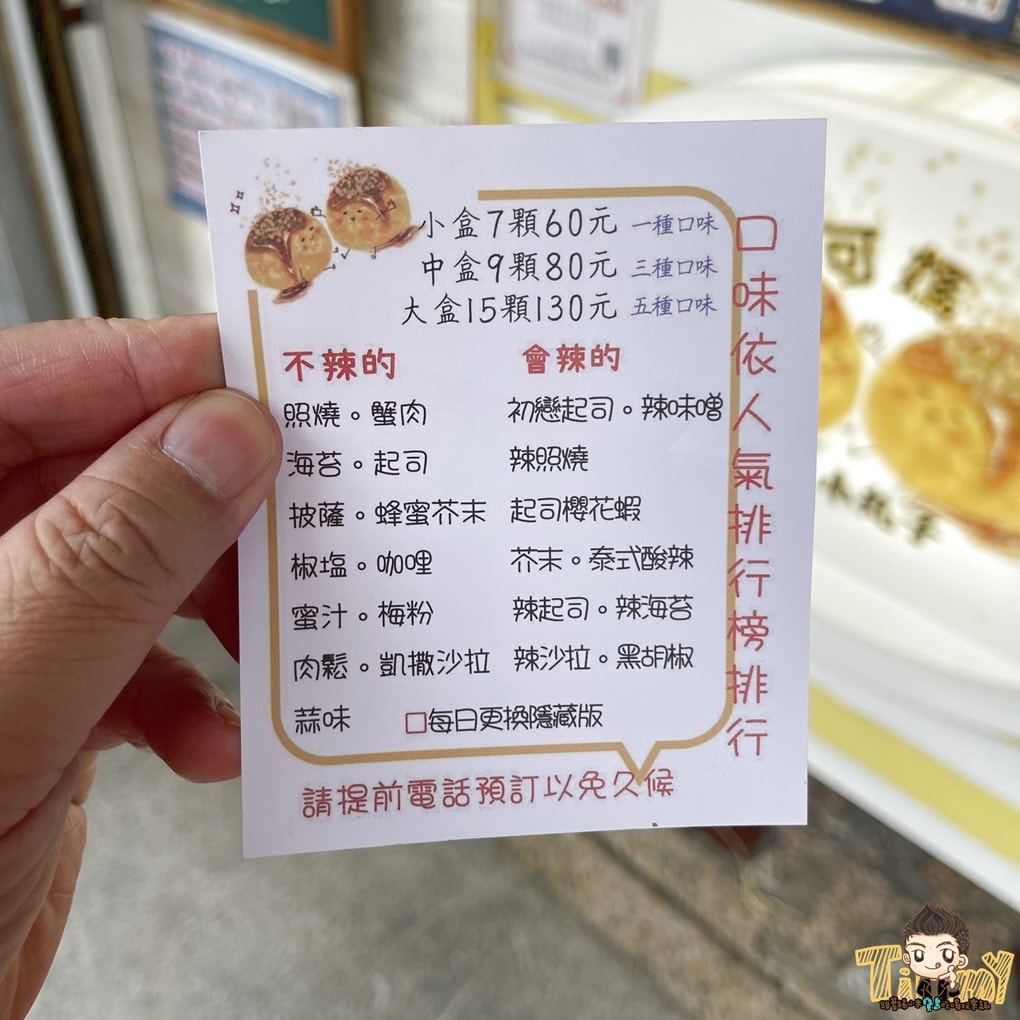 小盒7顆60元 一種口味
中盒9顆80元 三種口味
大盒15顆130元 五種口味
口味依人氣排行榜排行
不辣的
照燒。蟹肉
海苔。起司
披薩。蜂蜜芥末
椒塩。咖哩
蜜汁。梅粉
肉鬆。凱撒沙拉
蒜味
會辣的
初戀起司。辣味噌
辣照燒
起司櫻花蝦
芥末。泰式酸辣
辣起司。辣海苔
辣沙拉。黑胡椒
□每日更換隱藏版
請提前電話預訂以免久候
小丸子